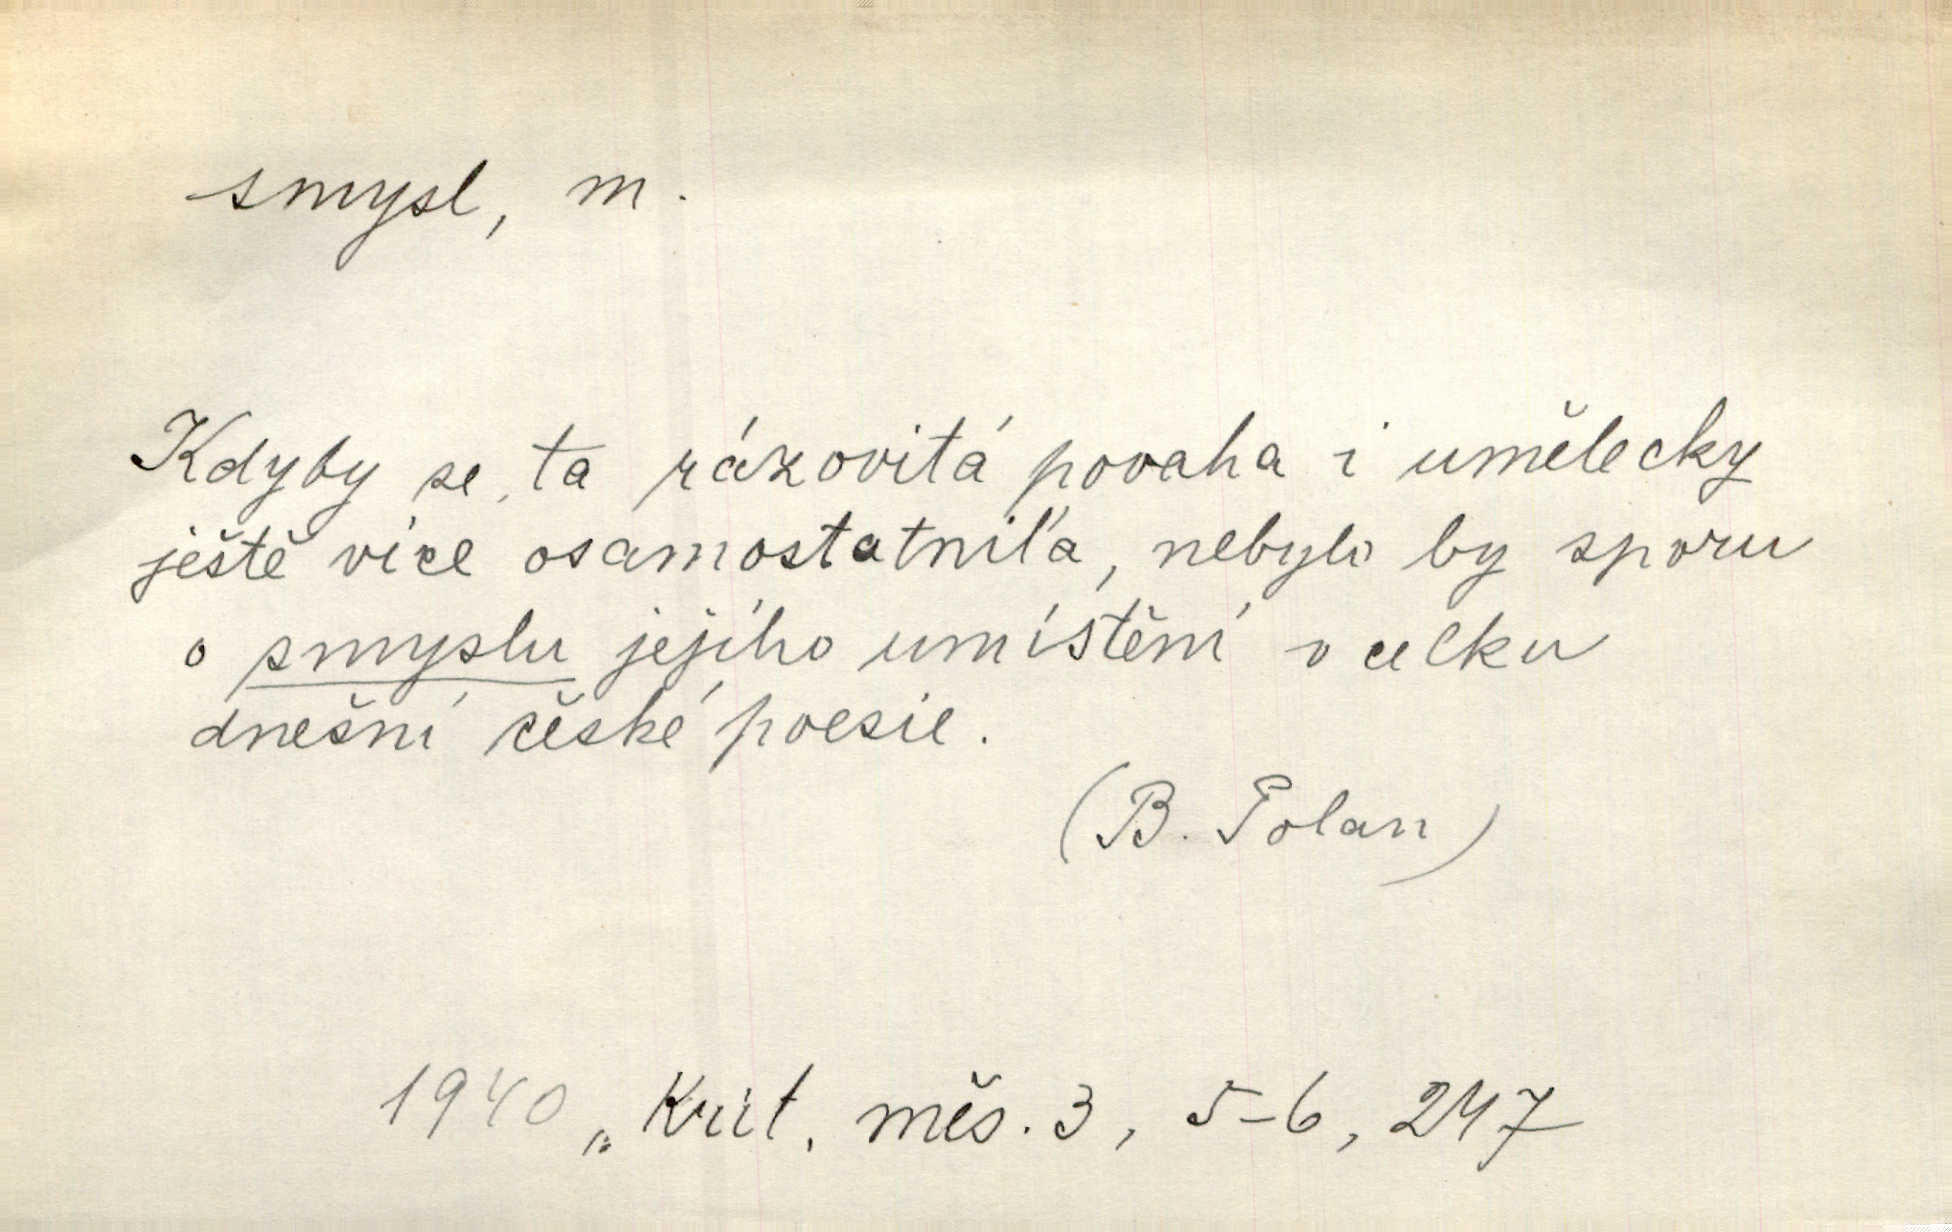 smysl, m.
Kdyby se ta rázovitá povaha i umělecky
ještě více osamostatnila, nebylo by sporu
o smyslu jejího umístění v celku
dnešní české poesie.
(B. Polan)
1940, Krit. měs. 3, 5-6, 247